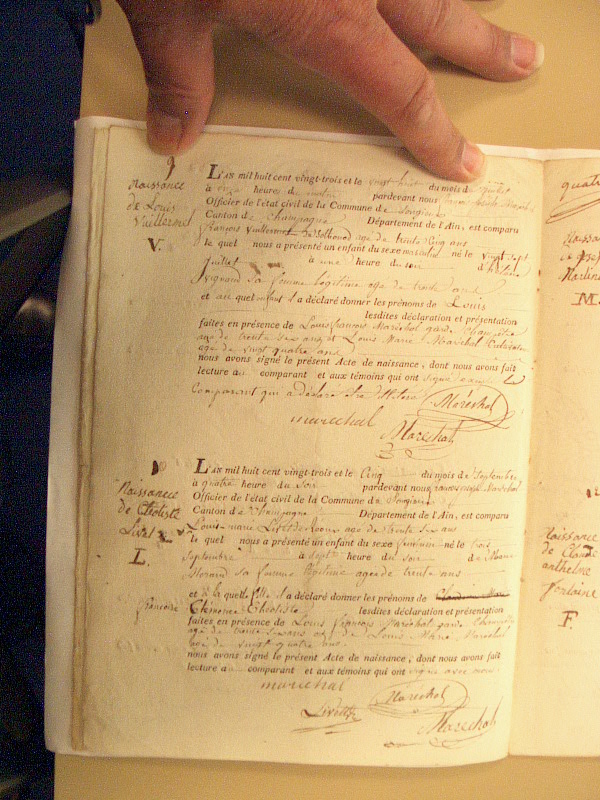 9
Naissance
de Louis
Vuillermet
V.
L'AN mil huit cent vingt-trois et le vingt huit du mois de juillet
à onze heures du matin pardevant nous
Officier de l'état civil de la Commune de Songieu
Canton de Champagne Département de l'Ain, est comparu
françois Vuillermet de age de trente cinq ans
le quel nous a présenté un enfant du sexe masculin né le vingt sept
Juillet à une heure du soir d'hélène
sa femme légitime age de trente ans
et au quel enfant il a déclaré donner les prénoms de Louis
lesdites déclaration et présentation
faites en présence de Louis françois Maréchal garde Champêtre
age de trente six ans et Louis Marie Maréchal Cultivateur
age de vingt quatre ans
nous avons signé le présent Acte de naissance, dont nous avons fait
lecture au comparant et aux témoins qui ont signé
Comparant qui a déclaré
Maréchal
marechal
Marechal
Naissance
de Théotiste
Livet
L.
L'AN mil huit cent vingt-trois et le Cinq du mois de Septembre
à quatre heure du soir pardevant nous françois Maréchal
Officier de l'état civil de la Commune de Songieu
Canton de Champagne Département de l'Ain, est comparu
Louis marie Livet age de trente six ans
le quel nous a présenté un enfant du sexe féminin né le trois
Septembre à sept heure du soir de
sa femme légitime age de trente ans
et à la quelle fille il a déclaré donner les prénoms de
françoise Clémence Théotiste lesdites déclaration et présentation
faites en présence de Louis françois Maréchal garde Champêtre
age de trente six ans et de Louis Marie Maréchal
age de vingt quatre ans
nous avons signé le présent Acte de naissance, dont nous avons fait
lecture au comparant et aux témoins qui ont signé avec nous
marechal
Maréchal
Livet
Marechal
quatre
Naissance
M.
Naissance
de Claude
anthelme
fontaine
F.